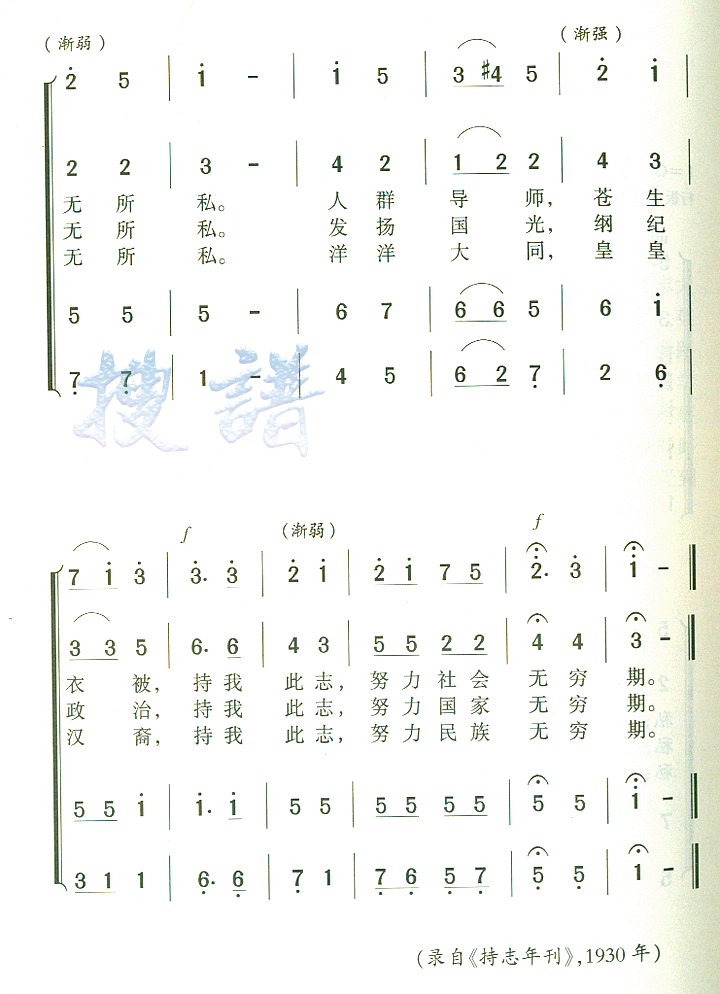 (渐弱) (渐强)
2 5 | 1 - | 1 5 | 3 #4 5 | 2 1 |
2 2 | 3 - | 4 2 | 1 2 2 | 4 3
无所 私。 人群 导师, 苍生
无所 私。 发扬 国光, 纲纪
无所 私。 洋洋 大同, 皇皇
5 5 | 5 - | 6 7 | 6 6 5 | 6 1
7 7 | 1 - | 4 5 | 6 2 7 | 2 6
搜谱
f (渐弱) f
7 1 3 | 3. 3 | 2 1 | 2 1 7 5 | 2. 3 | 1 -
3 3 5 | 6. 6 | 4 3 | 5 5 2 2 | 4 4 | 3 -
衣 被, 持我 此志, 努力社会 无穷 期。
政 治, 持我 此志, 努力国家 无穷 期。
汉 裔, 持我 此志, 努力民族 无穷 期。
5 5 1 | 1. 1 | 5 5 | 5 5 5 5 | 5 5 | 1 -
3 1 1 | 6. 6 | 7 1 | 7 6 5 7 | 5 5 | 1 -
(录自《持志年刊》,1930年)